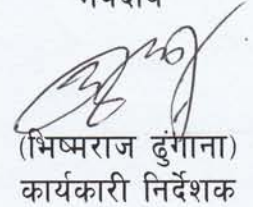 (भिष्मराज ढुंगाना)
कार्यकारी निर्देशक